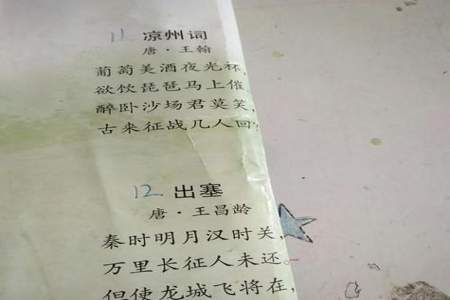 11 凉州词
唐·王翰
葡萄美酒夜光杯,
欲饮琵琶马上催
醉卧沙场君莫笑,
古来征战几人回
12 出塞
唐·王昌龄
秦时明月汉时关,
万里长征人未还。
但使龙城飞将在,